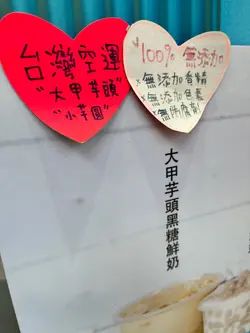 台灣空運
"大甲芋頭"
"小芋圓"
100% 無添加
×無添加香精
×無添加色素
×無防腐劑
大甲芋頭黑糖鮮奶